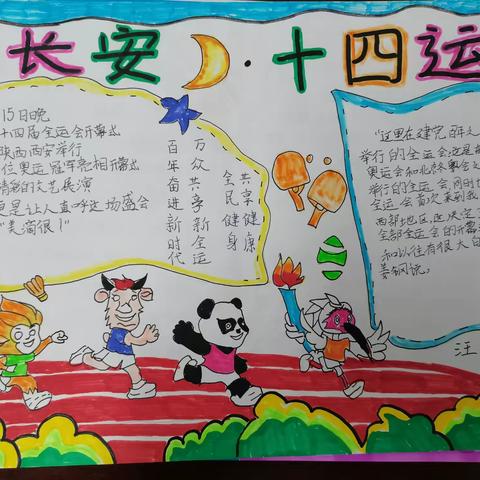 长安·十四运
15日晚
十四届全运会开幕式
陕西西安举行
位奥运冠军亮相开幕式
精彩的文艺展演
更是让人直呼这场盛会
"美滴很！"
百年奋进新时代
万众共享新全运
全民健身
共享健康
"这里在建党百年之
举行的全运会,还是
奥运会和
举行的全运会,同时也
全运会首次来到我
西部地区,这决定了
全部全运会的开幕
和以往有很大的
姜钢说。
汪